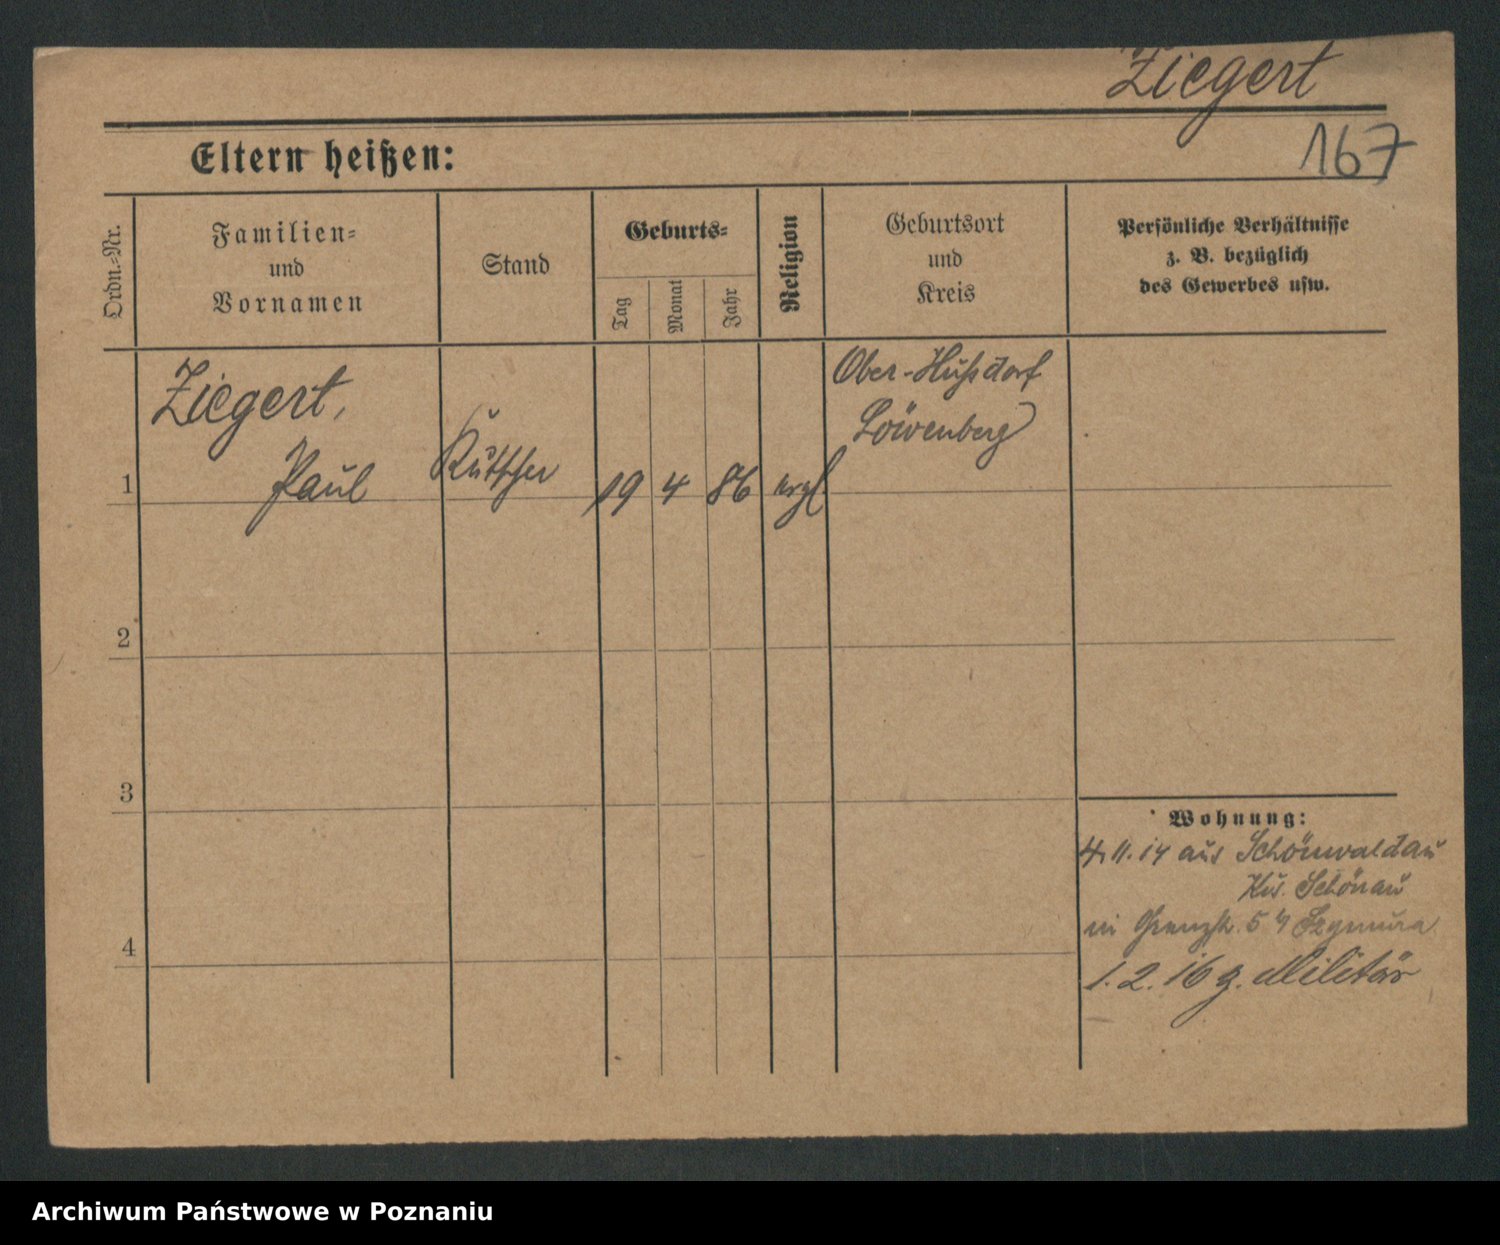 Ziegert
167
Eltern heißen:
Ordn.-Nr.
Familien-
und
Vornamen
Stand
Geburts-
Tag
Monat
Jahr
Religion
Geburtsort
und
Kreis
Persönliche Verhältnisse
z. B. bezüglich
des Gewerbes usw.
Ziegert,
Paul
Kutscher
1
19 4 86 evgl
Ober-Hußdorf
Löwenberg
2
3
4
Wohnung:
4.11.14 aus Schönwaldau
Krs. Schönau
in Grenzstr. 5 Szymura
1.2.16 z. Militär
Archiwum Państwowe w Poznaniu